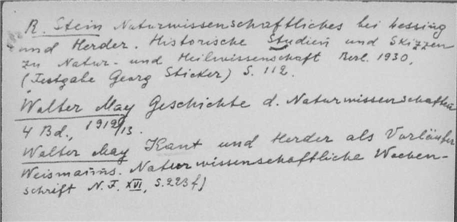 R. Stein Naturwissenschaftliches bei Lessing
und Herder. Historische Studien und Skizzen
zu Natur- und Heilwissenschaft Berl. 1930.
(Festgabe Georg Sticker) S. 112.
Walter May Geschichte d. Naturwissenschaften
4 Bd., 1912/13.
Walter May Kant und Herder als Vorläufer
Weismanns. Naturwissenschaftliche Wochen-
schrift N. F. XVI, S. 223 f)